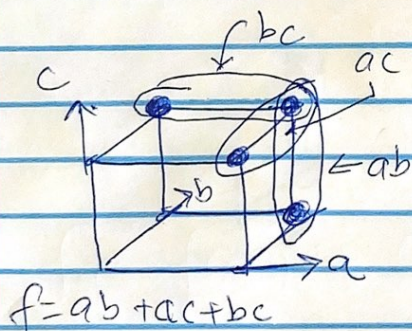 bc
c
ac
b
ab
a
f=ab+ac+bc